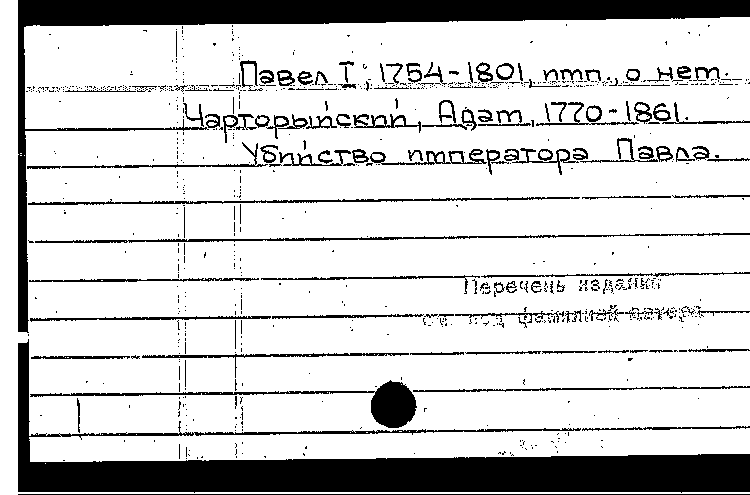 Павел I, 1754-1801, имп., о нем.
Чарторыйский, Адам, 1770-1861.
Убийство императора Павла.
Перечень изданий
см. под фамилией автора